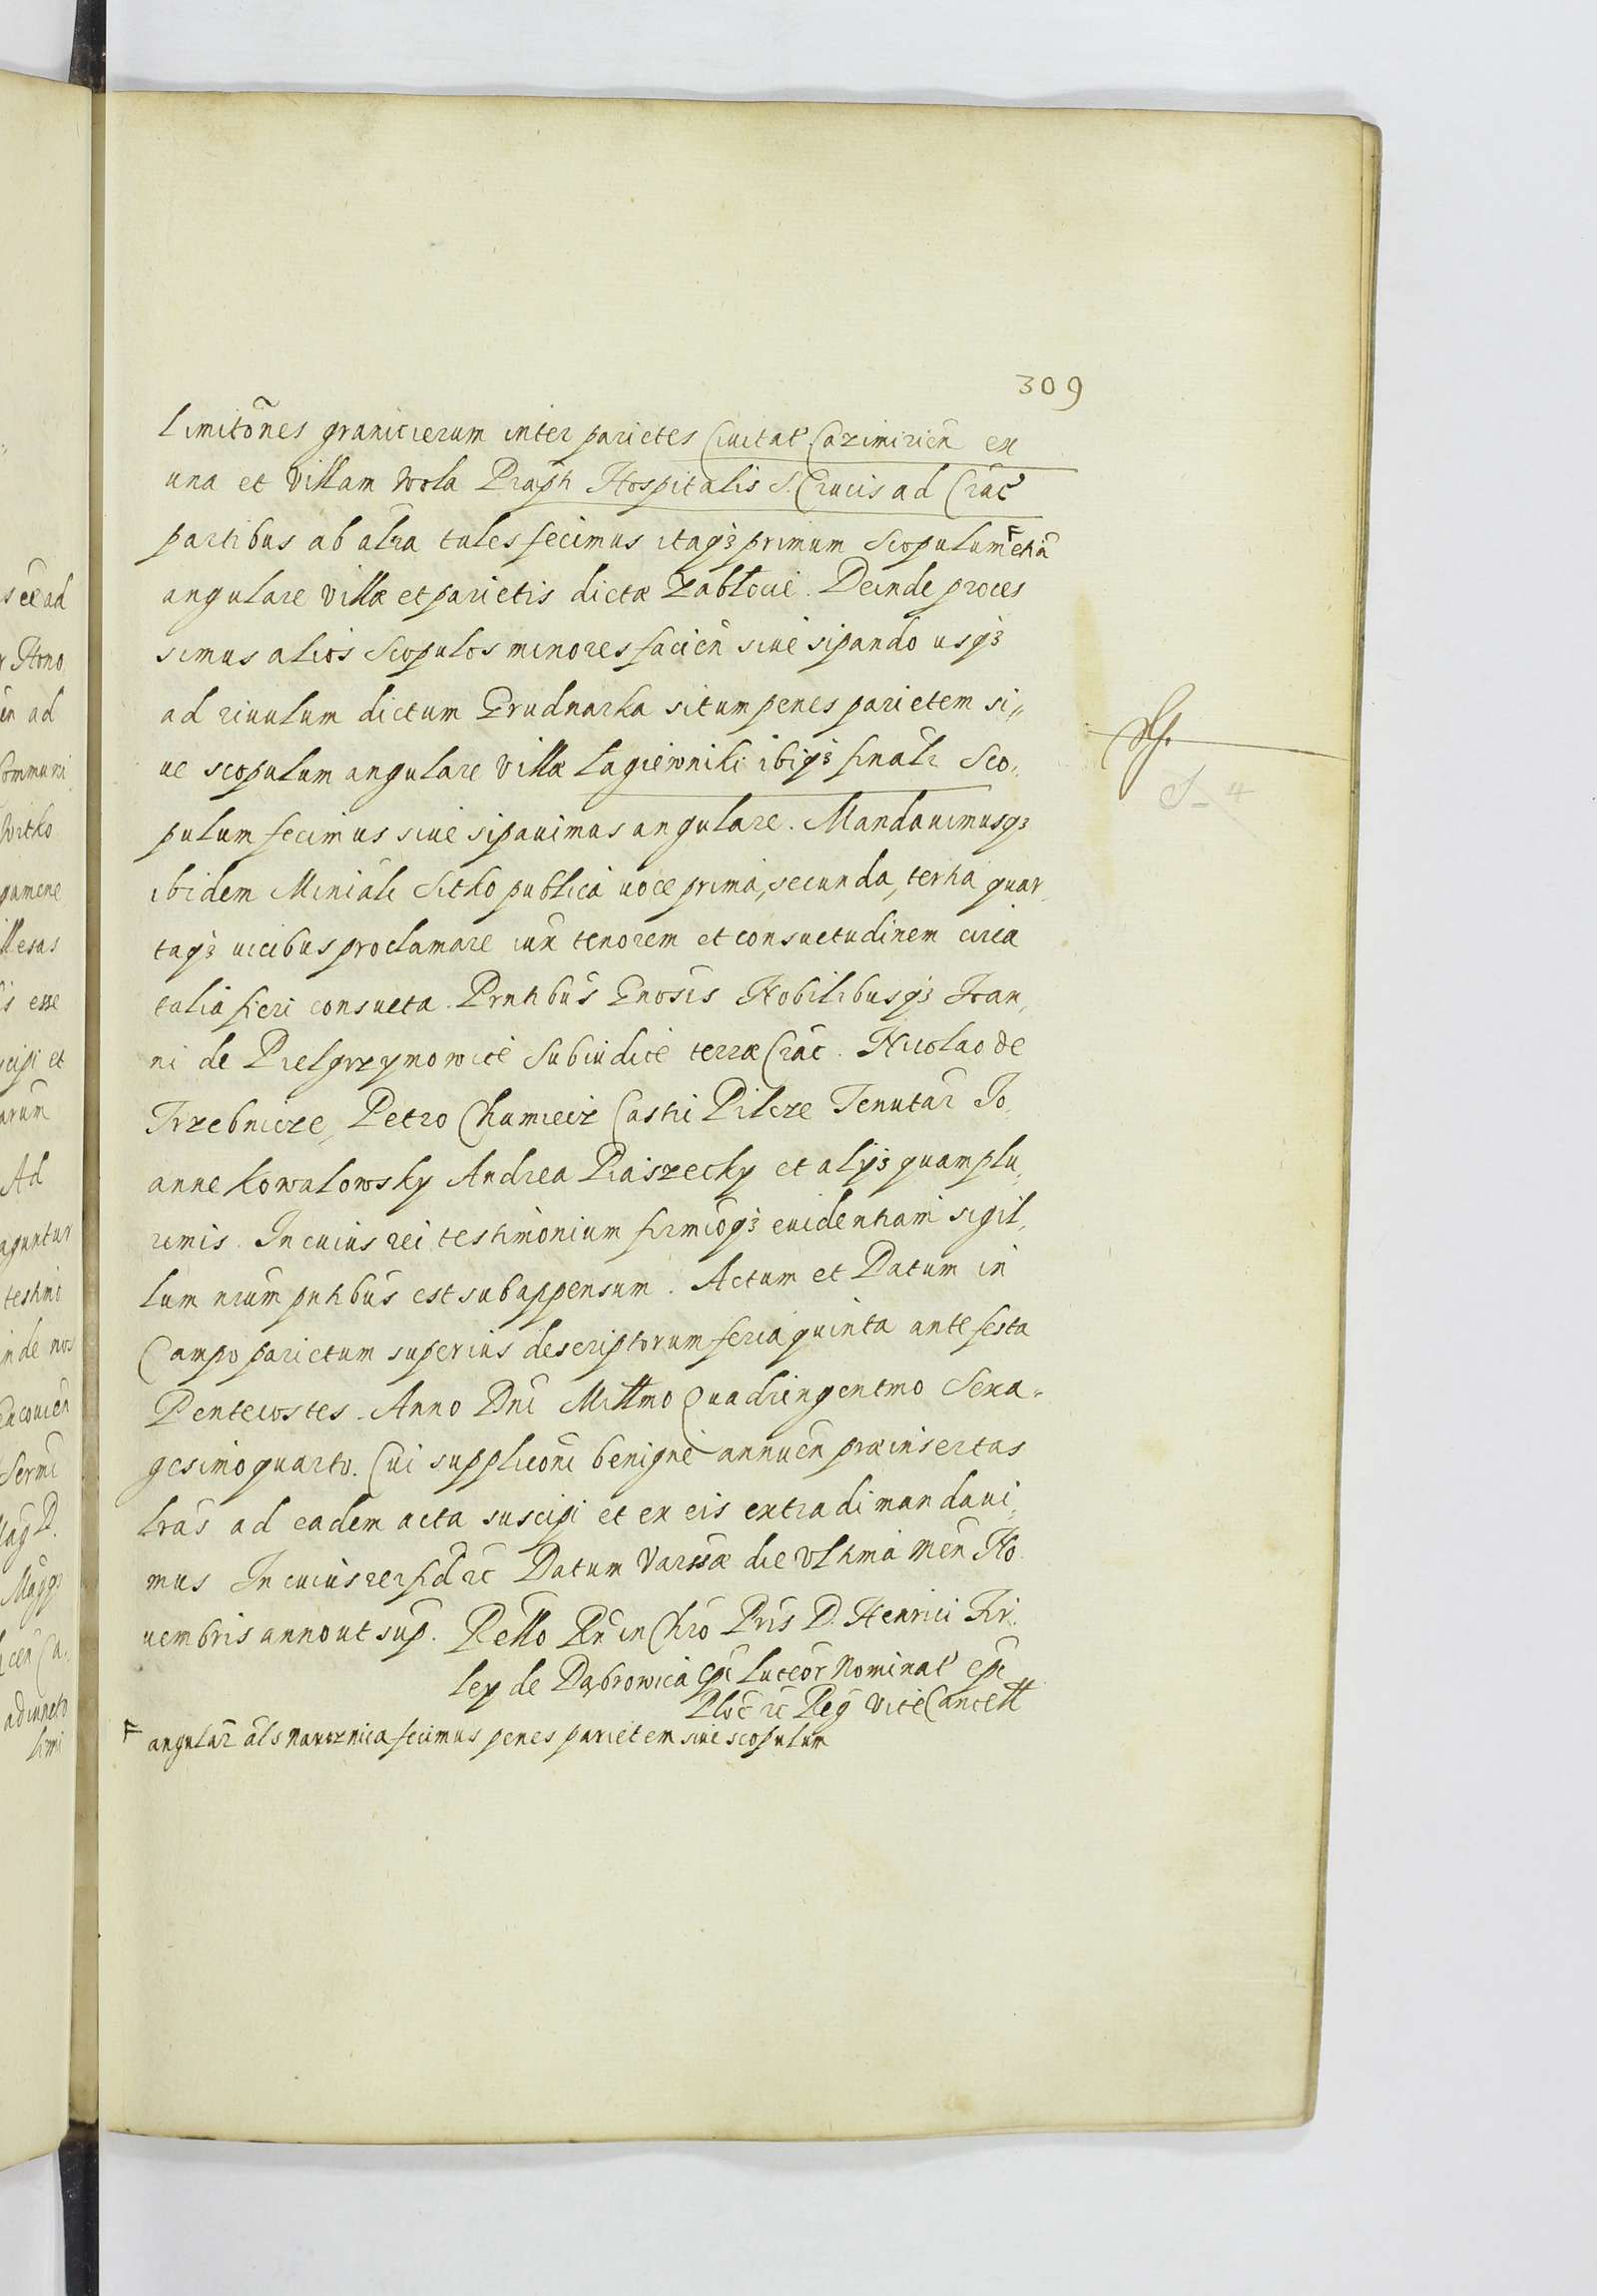 309
limitões granicierum inter parietes Ciuitat Cazimirien ex
una et Villam Wola Præp̃ti Hospitalis S. Crucis ad Crac̃
partibus ab alr̃a tales fecimus itaqȝ primum Scopulum F etiã
angulare villæ et parietis dictæ Zabłocie. Deinde proces
simus alios Scopulos minores facien̄ siue sipando usqȝ
ad riuulum dictum Brudnarka situm penes parietem si„
ue scopulum angulare villæ Łagiewniki ibiqȝ finalr Sco„
pulum fecimus siue sipauimus angulare. Mandauimusqȝ
ibidem Miniali Sitko publica uoce prima, secunda, tertia quar„
taqȝ uicibus proclamare iux tenorem et consuetudinem circa
talia fieri consueta. Prñtibus Gnosis Nobilibusqȝ Ioan„
ni de Pielgrzymowice Subiudice terræ Crac̃. Nicolao de
Trzebnicze, Petro Chamieiz Castri Pilcze Tenutar̃ Io„
anne Kowalowsky Andrea Piaszecky et alijs quamplu„
rimis. In cuius rei testimonium firmioqȝ euidentiam sigil„
lum nrũm pñtibus est subappensum. Actum et Datum in
Campo parietum superius descriptorum feria quinta ante festa
Pentecostes. Anno Dñi Millmo Quadringentmo Sexa„
gesimo quarto. Cui supplicõni benigne annuen̄ præinsertas
lrãs ad eadem acta suscipi et ex eis extradi mandaui„
mus In cuius rei fid̃ &c Datum Varsae die Vltima Men No„
uembris anno ut sup. Rello Rñ in Chro Pris D. Henrici Fir„
ley de Dąbrowica Epĩ Luceõr Nominat Epĩ
Płoc̃ &c Reg̃ ViceCancell
F angular̃ als naroznica fecimus penes parietem siue scopulum
S_4
s eë ad
r Hono
en ad
Communi
Witko
gamene
illesas
is esse
cipi et
arum
Ad
aguntur
testimo
inde nos
acouien
Sermi
Mag D.
Magqȝ
cen Ca„
adiuncto
limi